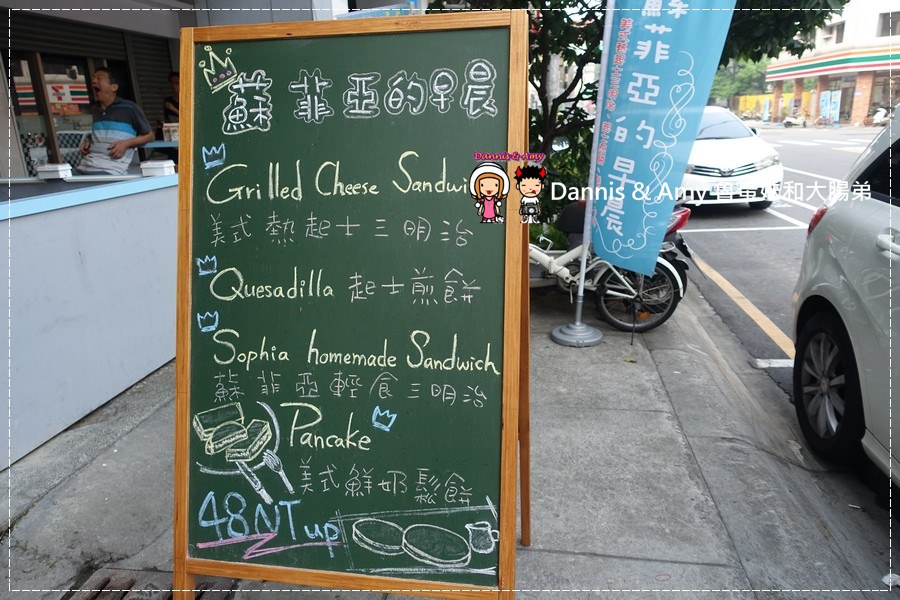 蘇菲亞的早晨
Grilled Cheese Sandwi
美式熱起士三明治
Quesadilla 起士煎餅
Sophia homemade Sandwich
蘇菲亞輕食三明治
Pancake
美式鮮奶鬆餅
48NT up
蘇菲亞的早晨
Dannis & Amy
Dannis & Amy
和大腸弟